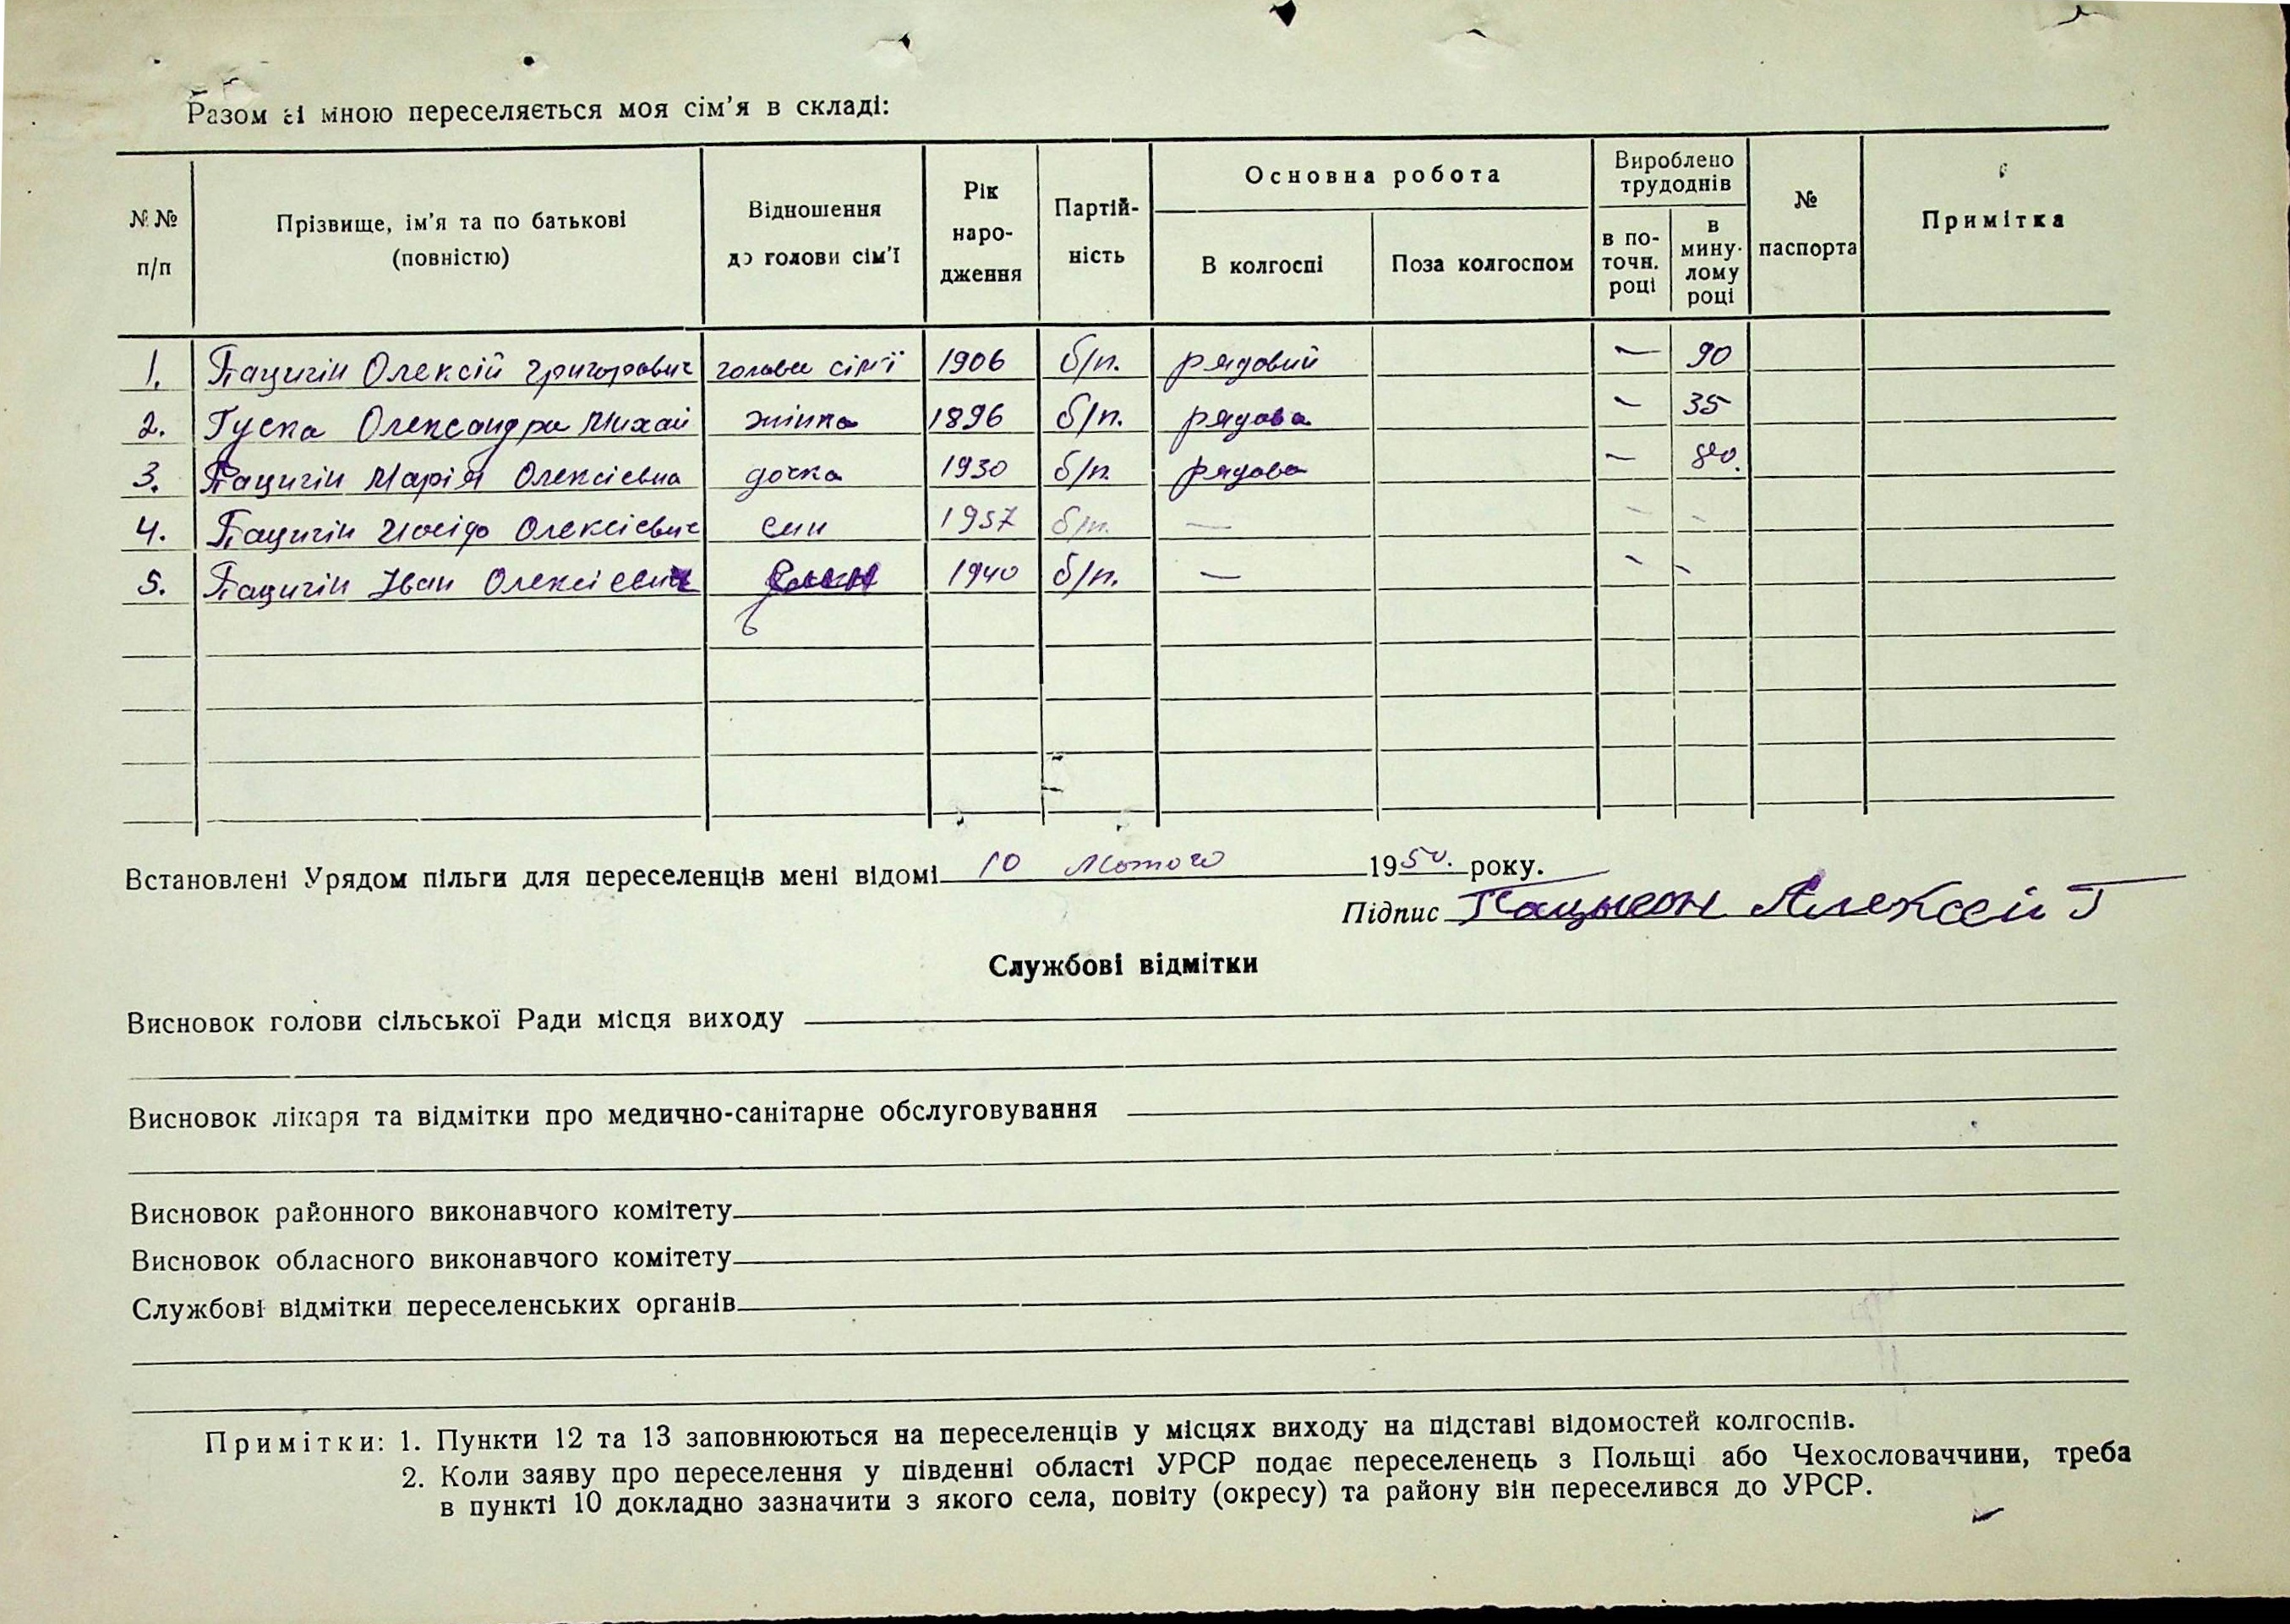 Разом зі мною переселяється моя сім'я в складі:
№№ п/п | Прізвище, ім'я та по батькові (повністю) | Відношення до голови сім'ї | Рік народження | Партійність | Основна робота | Вироблено трудоднів | № паспорта | Примітка
В колгоспі | Поза колгоспом | в поточн. році | в минулому році
1. Пацигін Олексій Григорович голова сім'ї 1906 б/п. рядовий — 90
2. Гуска Олександра Михай жінка 1896 б/п. рядова — 35
3. Пацигін Марія Олексієвна дочка 1930 б/п. рядова — 80.
4. Пацигін Олексієвич син 1937 б/п. — - -
5. Пацигін Іван Олексієвич син 1940 б/п. — - -
Встановлені Урядом пільги для переселенців мені відомі 10 Лютого 1950. року.
Підпис Алексей Г
Службові відмітки
Висновок голови сільської Ради місця виходу
Висновок лікаря та відмітки про медично-санітарне обслуговування
Висновок районного виконавчого комітету
Висновок обласного виконавчого комітету
Службові відмітки переселенських органів
Примітки: 1. Пункти 12 та 13 заповнюються на переселенців у місцях виходу на підставі відомостей колгоспів.
2. Коли заяву про переселення у південні області УРСР подає переселенець з Польщі або Чехословаччини, треба
в пункті 10 докладно зазначити з якого села, повіту (окресу) та району він переселився до УРСР.